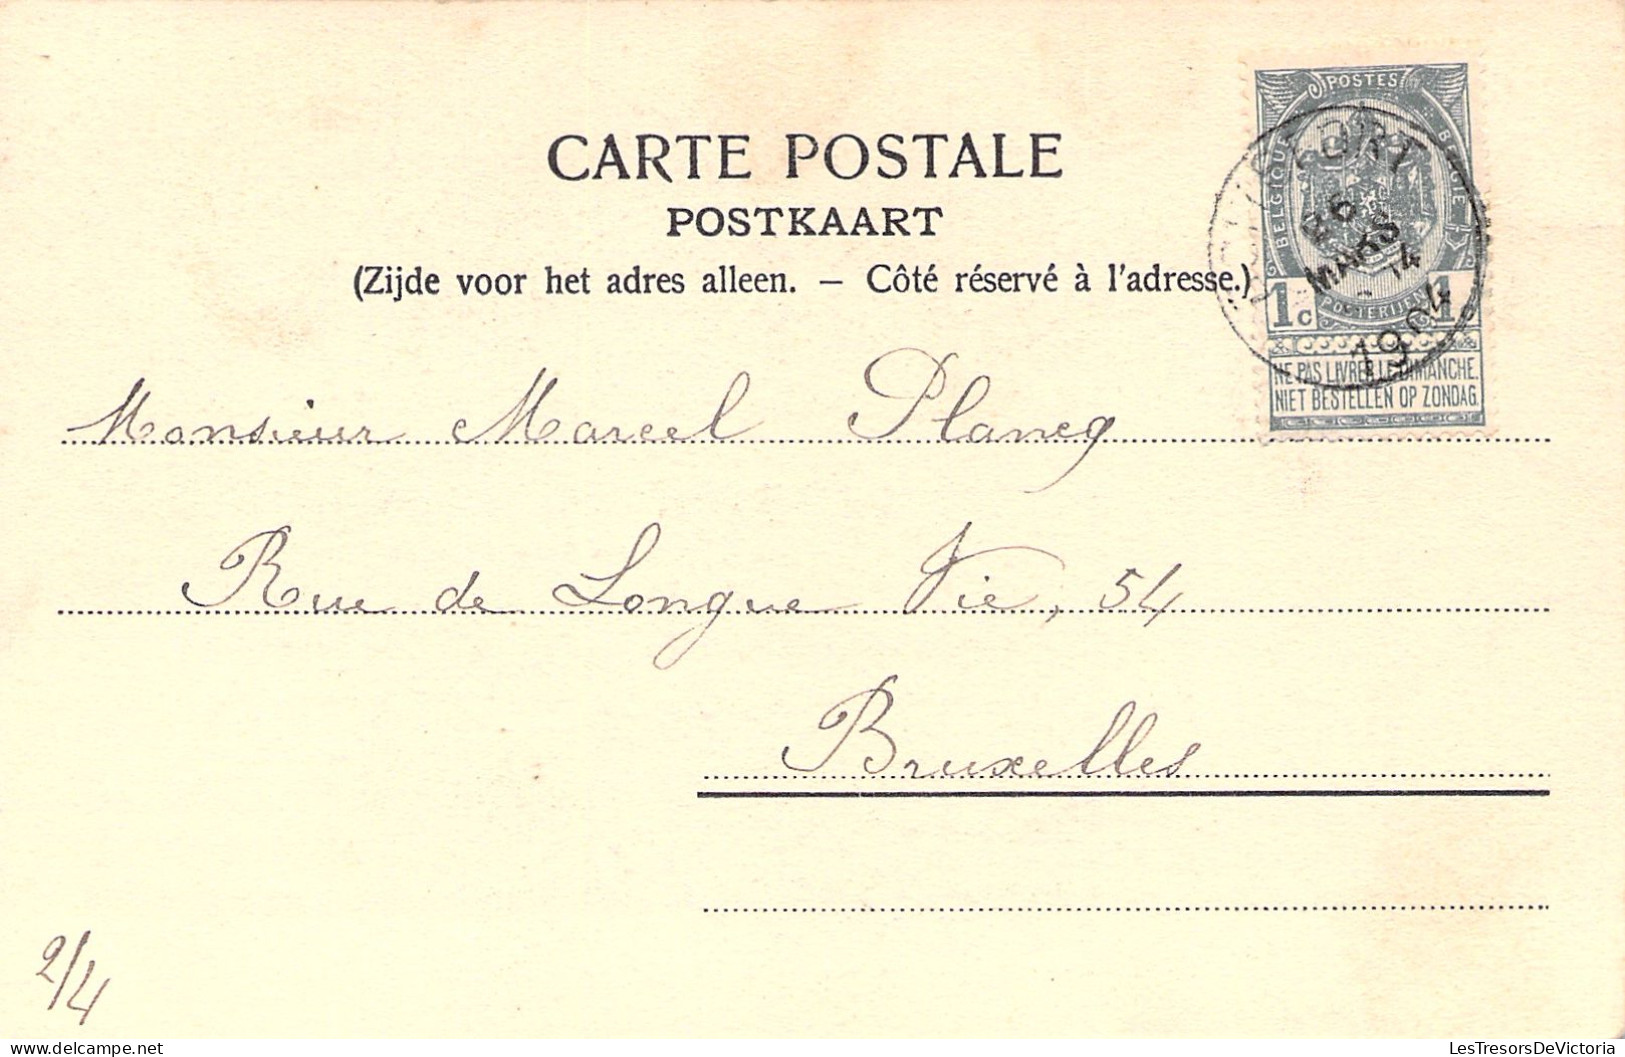 CARTE POSTALE
POSTKAART
(Zijde voor het adres alleen. — Côté réservé à l'adresse.)
POSTES
BELGIQUE
BELGIË
POSTERIJEN
1c 1
NE PAS LIVRER LE DIMANCHE.
NIET BESTELLEN OP ZONDAG.
26
MARS
14
1904
Monsieur Marcel Plancq
Rue de Longue Vie, 54
Bruxelles
2/4
LesTresorsDeVictoria